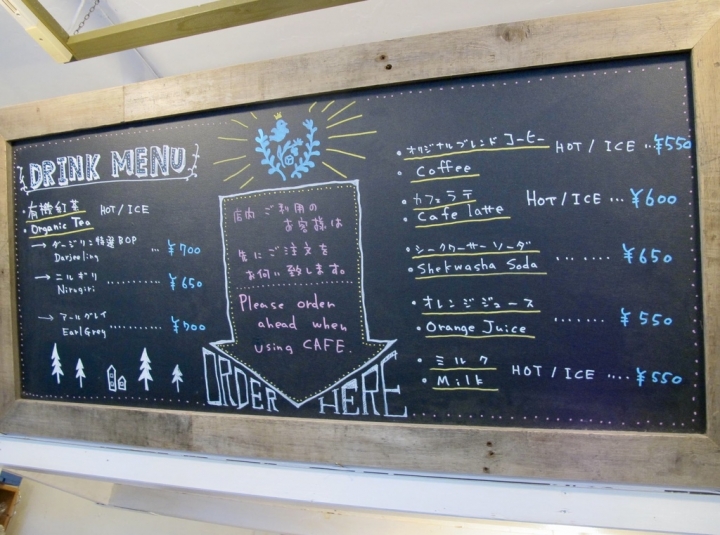 DRINK MENU
・有機紅茶 HOT / ICE
・Organic Tea
→ ダージリン特選BOP ... ¥700
Darjeeling
→ ニルギリ ......... ¥650
Nirugiri
→ アールグレイ
Earl Grey .......... ¥700
店内ご利用の
お客様は
先にご注文を
お伺い致します。
Please order
ahead when
using CAFE.
ORDER HERE
・オリジナルブレンドコーヒー HOT / ICE ...¥550
・Coffee
・カフェラテ HOT / ICE .... ¥600
・Cafe latte
・シークワーサーソーダ ....... ¥650
・Shekwasha Soda
・オレンジジュース ....... ¥550
・Orange Juice
・ミルク HOT / ICE .... ¥550
・Milk